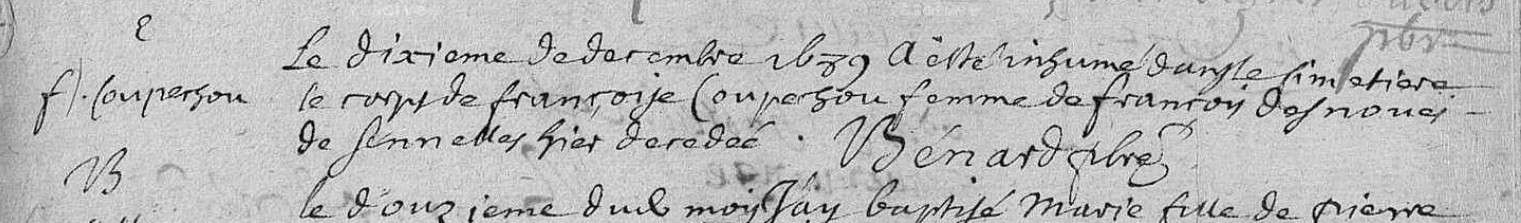 pbr
S
Le dixieme de decembre 1689 A esté inhumé dans le simetiere
f). Coupechou le corps de françoise Coupechou femme de françois desnoues
de sennelles hier decedeé. Bénard pbre
B
le douzieme dud mois J'ay baptisé Marie fille de pierre